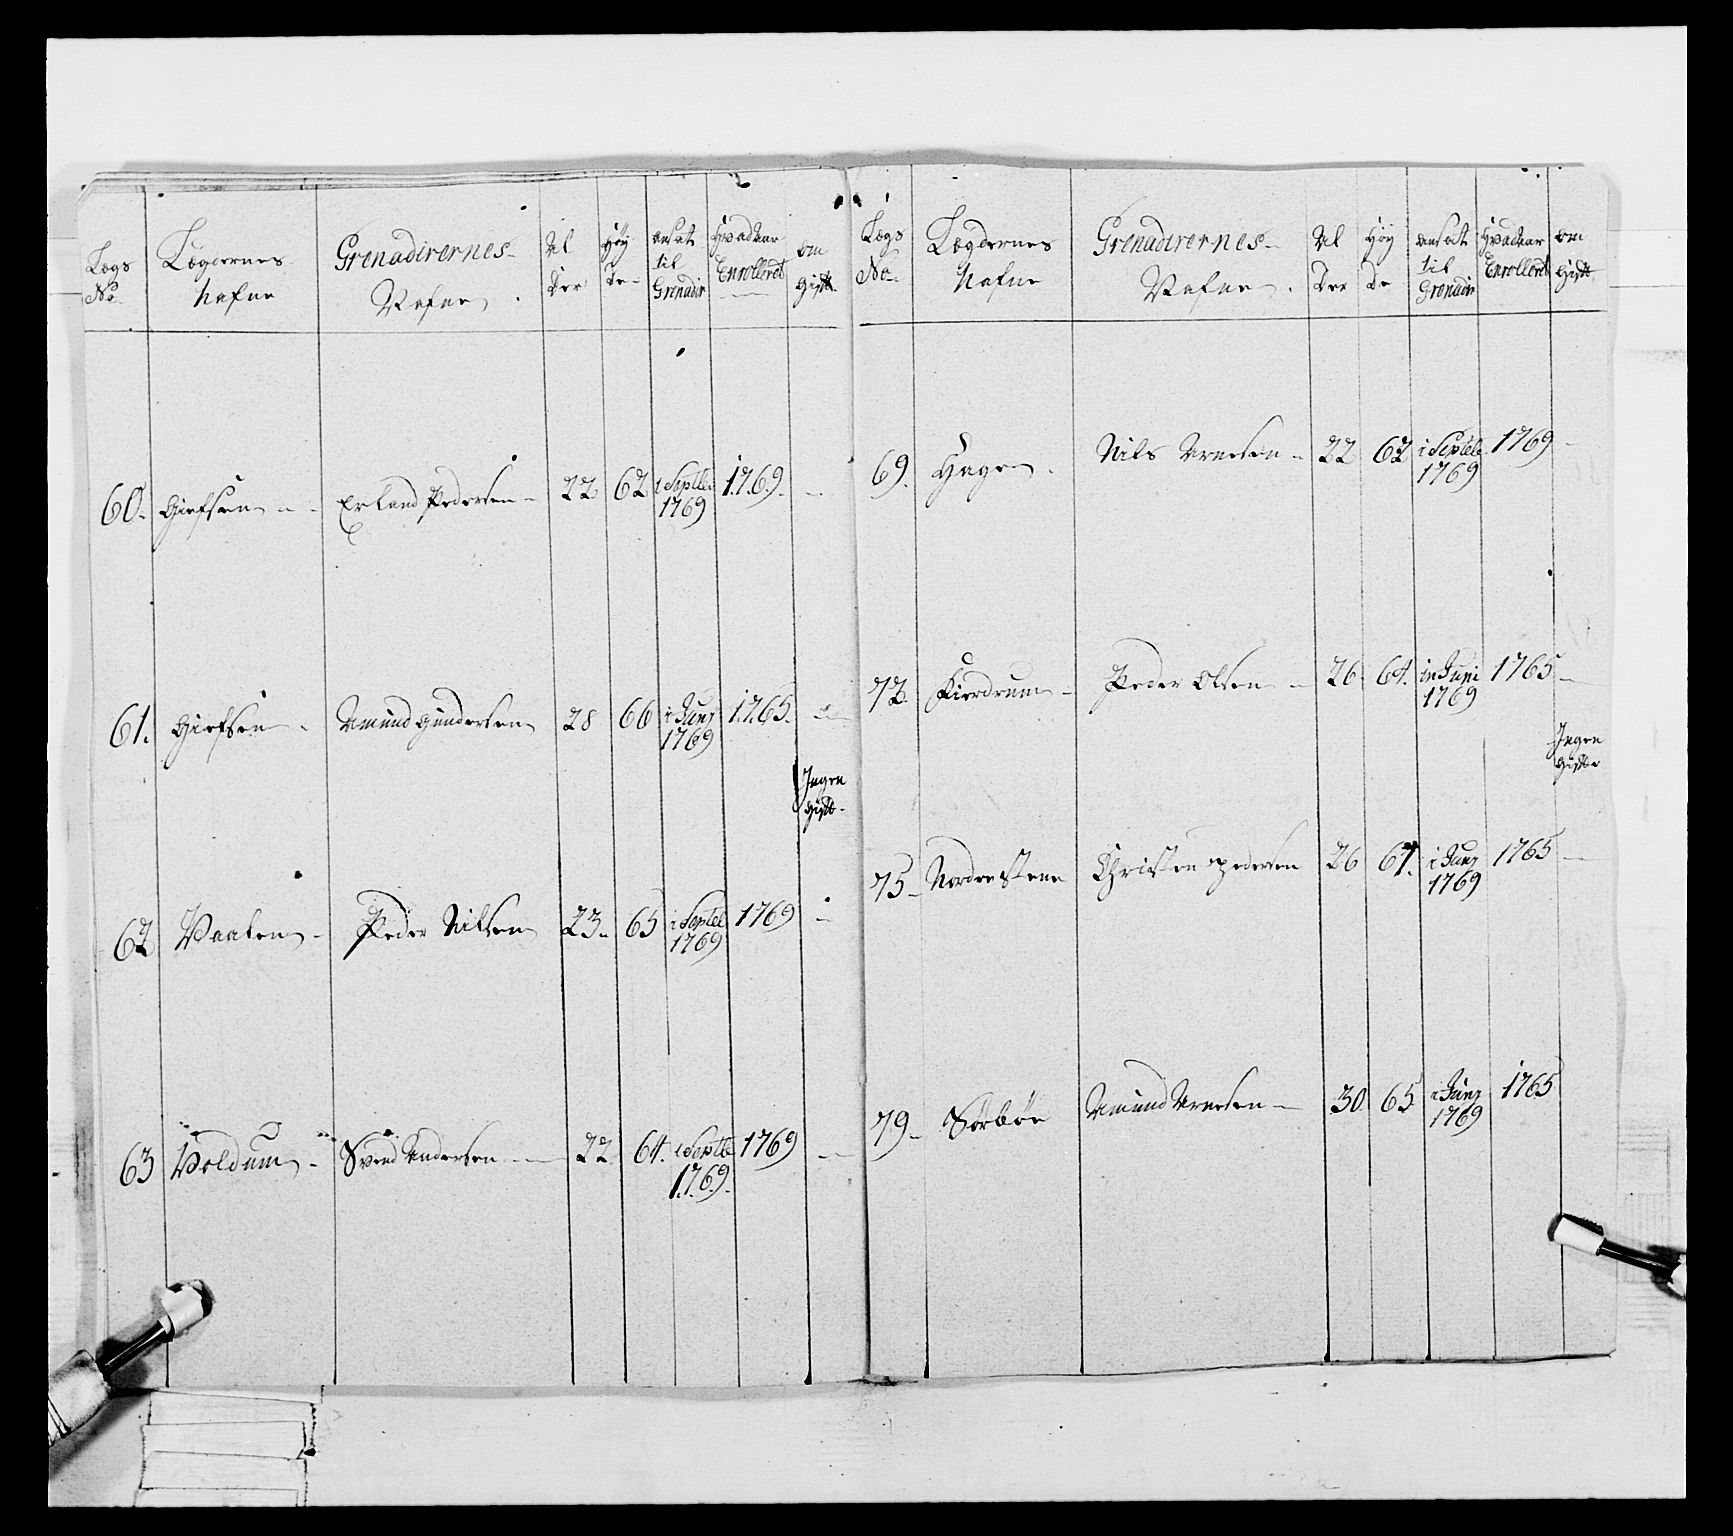 Lægs No. Lægdernes Nafne Grenadirernes Nafne. Alder Høyde ansat til Grenadir Hvad aar Enrolleret om gift
60. Giefsen Erland Pedersen 22 62 i Septbr 1769 1769
61. Giefsen Amund Gundersen 28 66 i Junj 1769 1765
Ingen gift
62 Vaalen Peder Nilsen 23 65 i Septbr 1769 1769
63 Voldum Svend Andersen 22 64. i Septbr 1769 1769
Lægs No. Lægdernes Nafne Grenadirernes Nafne. Alder Høyde ansat til Grenadir Hvad aar Enrolleret om gift
69. Hagen Nils Arnesen 22 62 i Septbr 1769 1769
72. Kierdrum Peder Olsen 26 64. in Juni 1769 1765
Ingen gifte
75 Nordre Stene Christen Pedersen 26 67. i Junj 1769 1765
79 Sørbøe Amund Arnesen 30 65 i Junj 1769 1765